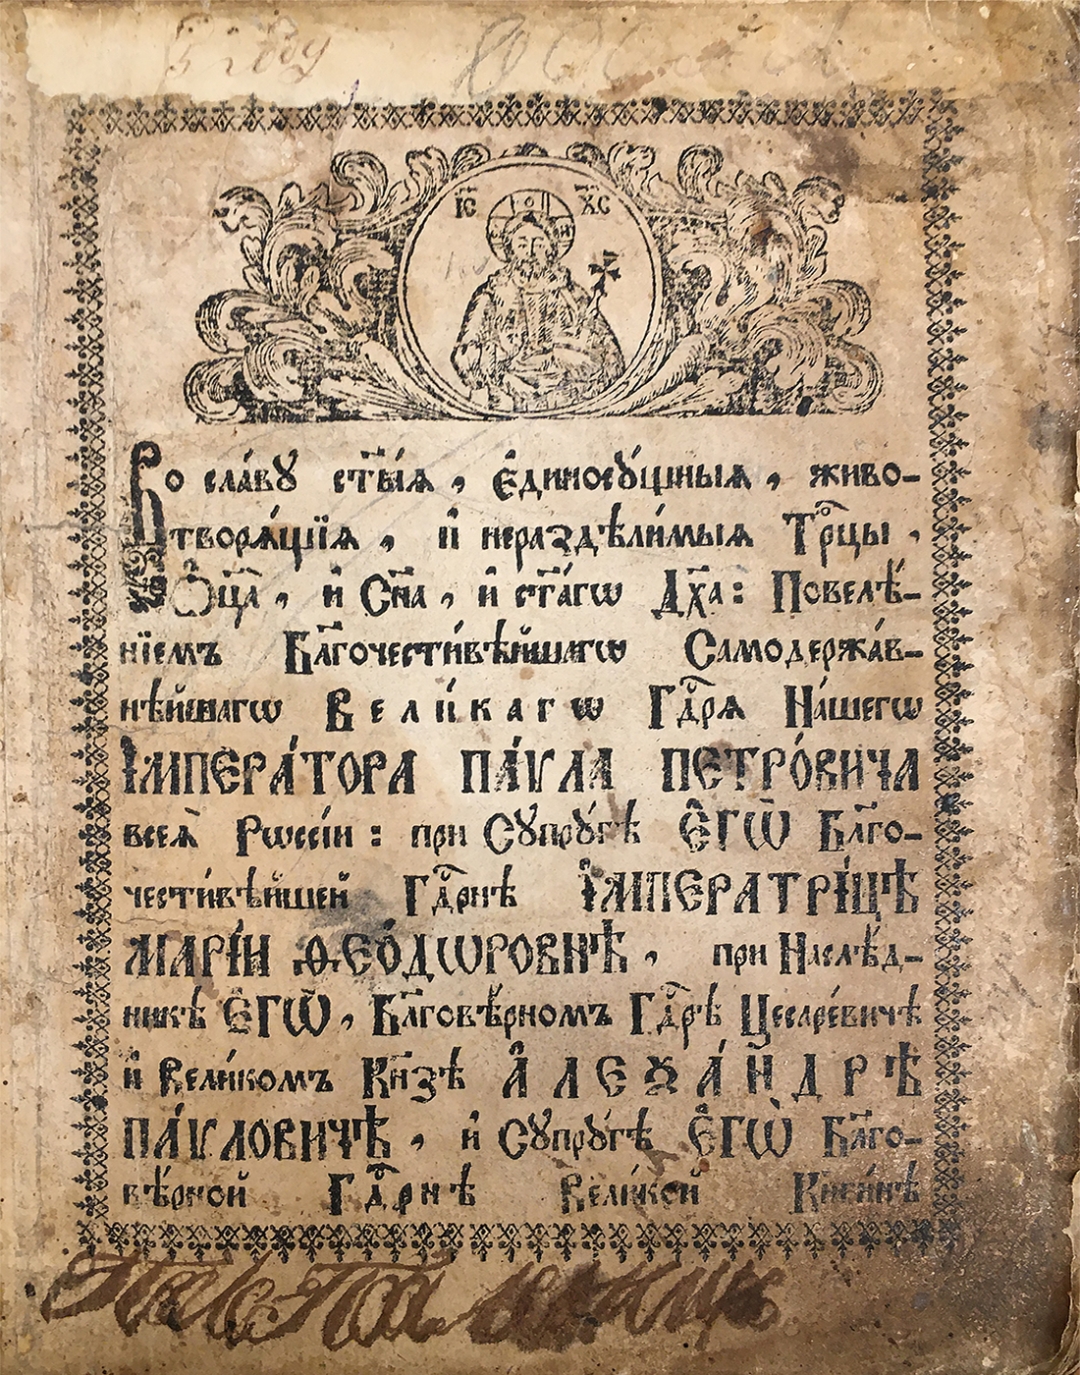 І҃С Х҃С
Во сла́вꙋ ст҃ы́ѧ, є҆диносꙋ́щныѧ, живо-
творѧ́щїѧ, и҆ нераздѣли́мыѧ Трⷪ҇цы,
Ѻ҆ц҃а̀, и҆ Сн҃а, и҆ ст҃а́гѡ Дх҃а: Повелѣ́-
нїемъ Бл҃гочести́вѣйшагѡ Самодержа́в-
нѣ́йшагѡ Вели́кагѡ Гдⷭ҇рѧ На́шегѡ
І҆МПЕРА́ТОРА ПА́ѴЛА ПЕТРО́ВИЧА
всеѧ̀ Рѡссі́и: при Сꙋпрꙋ́гѣ Є҆ГѠ̀ Бл҃го-
чести́вѣйшей Гдⷭ҇рнѣ І҆МПЕРАТРІ́ЦѢ
МАРІ́И ѲЕО́ДѠРОВНѢ, при Наслѣ́д-
никѣ Є҆ГѠ̀, Бл҃говѣ́рномъ Гдⷭ҇рѣ Цесаре́вичѣ
и҆ Вели́комъ Кн҃зѣ А҆ЛЕѮА́НДРѢ
ПА́ѴЛОВИЧѢ, и҆ Сꙋпрꙋ́гѣ Є҆ГѠ̀ Бл҃го-
вѣ́рной Гдⷭ҇рнѣ Вели́кой Кнѧги́нѣ